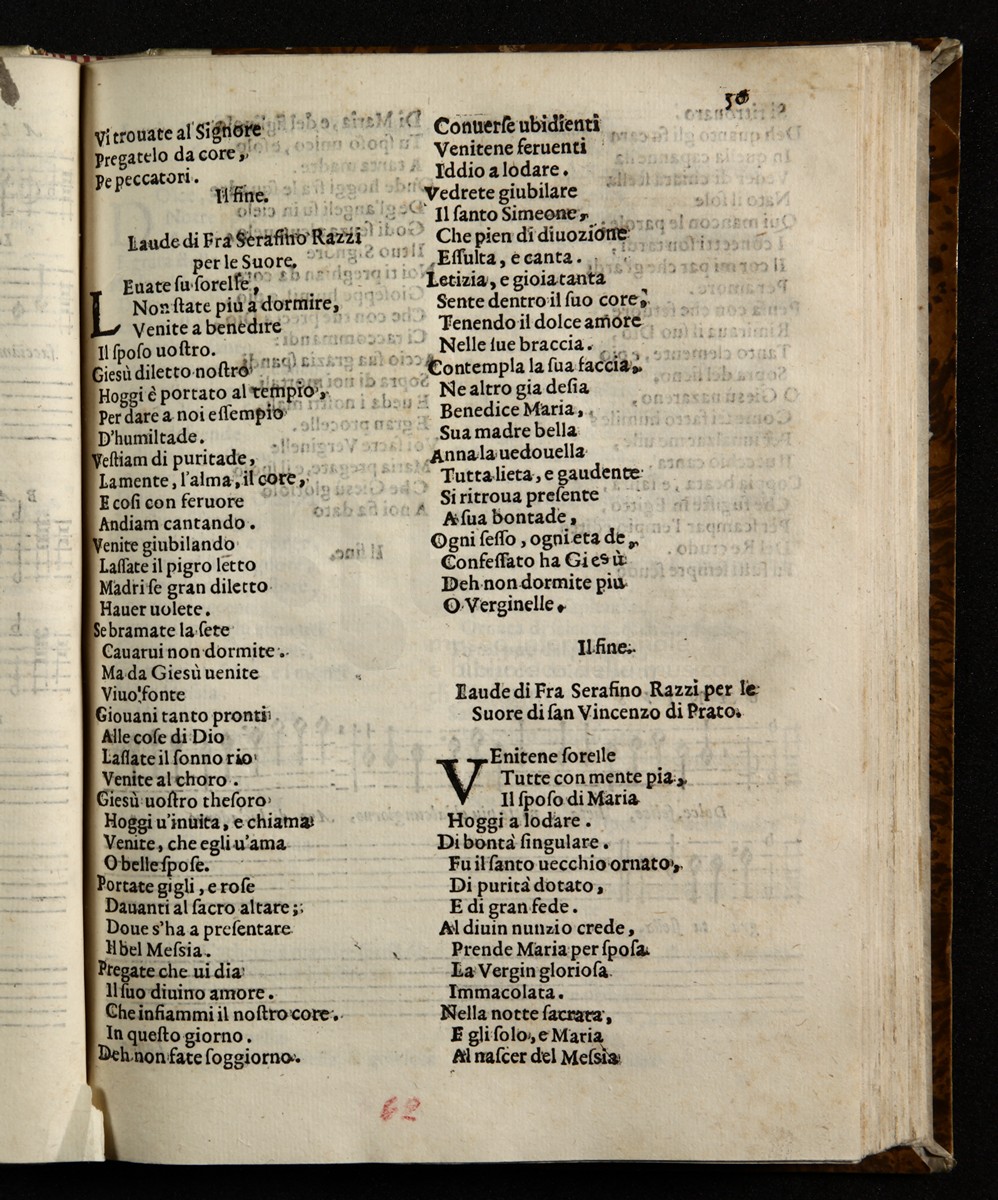 50
Vi trouate al Signore
Pregatelo da core,
Pe peccatori.
Il fine.
Laude di Fra Serafino Razzi
per le Suore.
LEuate su ſorelle,
Non ſtate piu a dormire,
Venite a benedire
Il ſpoſo uoſtro.
Gieſù diletto noſtro
Hoggi è portato al tempio,
Per dare a noi eſſempio
D'humiltade.
Veſtiam di puritade,
La mente, l'alma, il core,
E coſi con feruore
Andiam cantando.
Venite giubilando
Laſſate il pigro letto
Madri ſe gran diletto
Hauer uolete.
Se bramate la ſete
Cauarui non dormite.
Ma da Gieſù uenite
Viuo fonte
Giouani tanto pronti
Alle coſe di Dio
Laſſate il ſonno rio
Venite al choro.
Gieſù uoſtro theſoro
Hoggi u'inuita, e chiama
Venite, che egli u'ama
O belle ſpoſe.
Portate gigli, e roſe
Dauanti al ſacro altare;
Doue s'ha a preſentare
Il bel Meſsia.
Pregate che ui dia
Il ſuo diuino amore.
Che infiammi il noſtro core.
In queſto giorno.
Deh non fate ſoggiorno.
Conuerſe ubidienti
Venitene feruenti
Iddio a lodare.
Vedrete giubilare
Il ſanto Simeone,
Che pien di diuozione
Eſſulta, e canta.
Letizia, e gioia tanta
Sente dentro il ſuo core,
Tenendo il dolce amore
Nelle ſue braccia.
Contempla la ſua faccia,
Ne altro gia deſia
Benedice Maria,
Sua madre bella
Anna la uedouella
Tutta lieta, e gaudente
Si ritroua preſente
A ſua bontade,
Ogni ſeſſo, ogni eta de,
Confeſſato ha Giesù
Deh non dormite piu
O Verginelle.
Il fine.
Laude di Fra Serafino Razzi per le
Suore di ſan Vincenzo di Prato.
VEnitene ſorelle
Tutte con mente pia,
Il ſpoſo di Maria
Hoggi a lodare.
Di bontà ſingulare.
Fu il ſanto uecchio ornato,
Di purità dotato,
E di gran fede.
Al diuin nunzio crede,
Prende Maria per ſpoſa
La Vergin glorioſa
Immacolata.
Nella notte ſacrata,
E gli ſolo, e Maria
Al naſcer del Meſsia
62